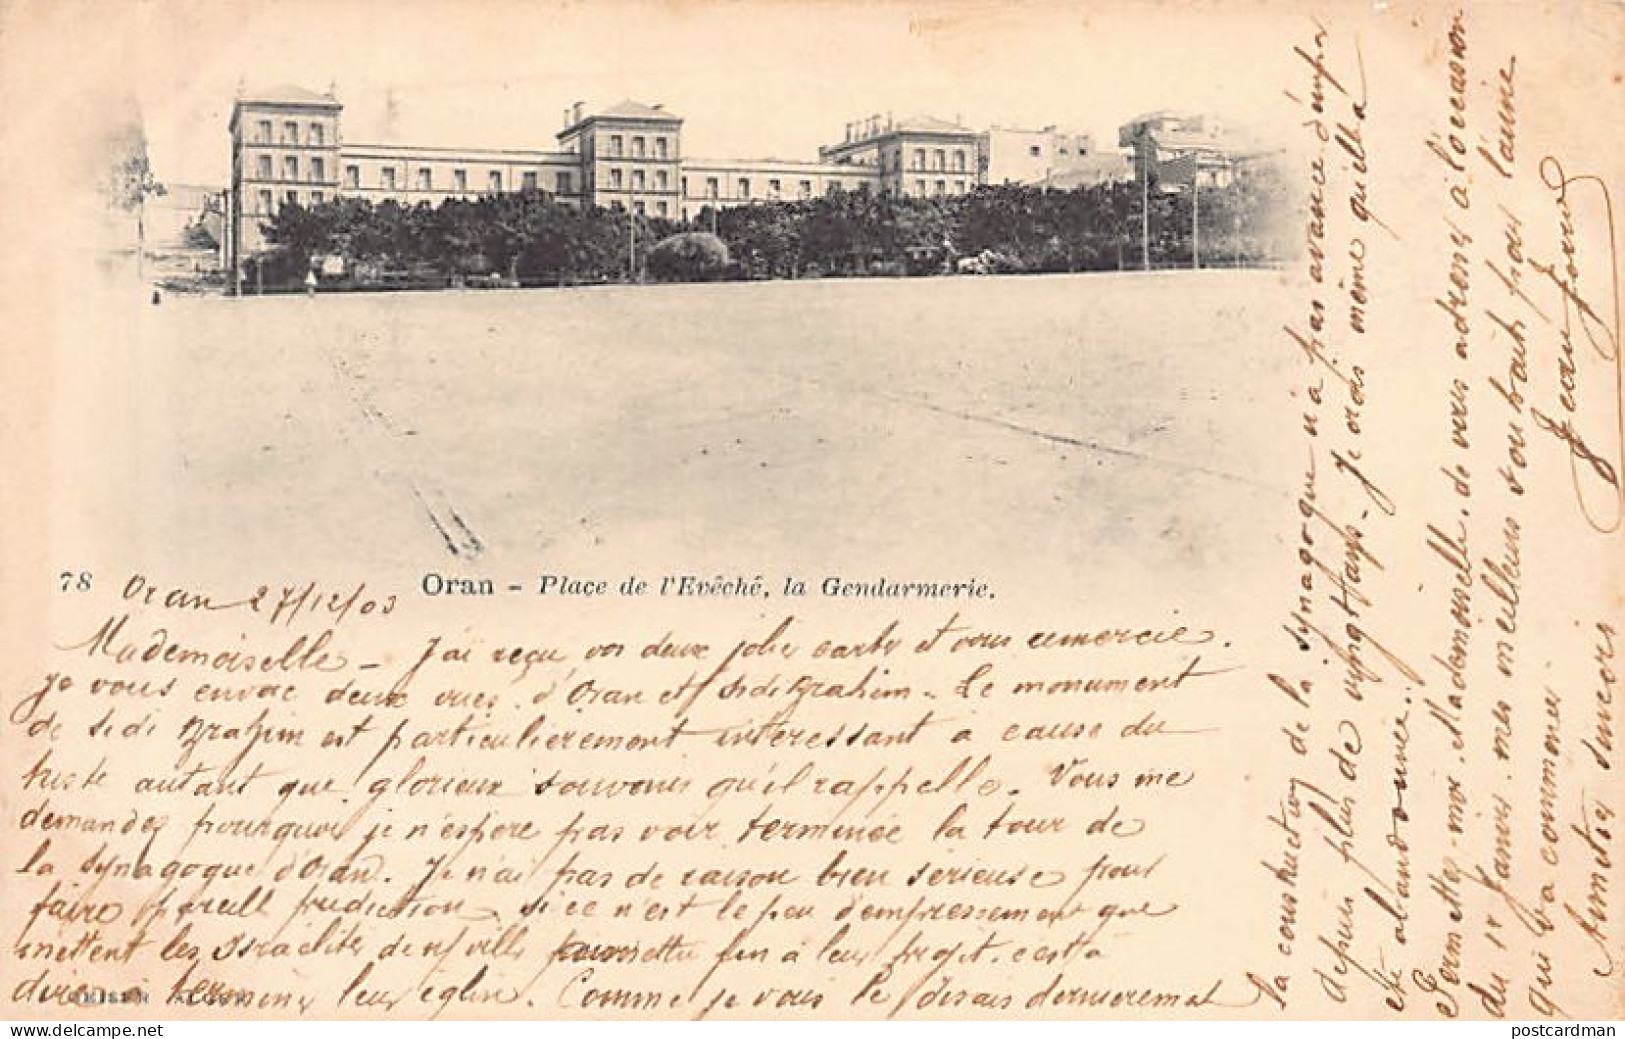 78 Oran - Place de l'Evêché, la Gendarmerie.
Oran 27/12/03
Mademoiselle - J'ai reçu vos deux jolies cartes et vous remercie.
Je vous envoie deux vues d'Oran et Sidi Brahim. Le monument
de Sidi Brahim est particulièrement intéressant à cause du
triste autant que glorieux souvenir qu'il rappelle. Vous me
demandez pourquoi je n'espère pas voir terminée la tour de
la synagogue d'Oran. Je n'ai pas de raison bien sérieuse pour
faire pareille prédiction, si ce n'est le peu d'empressement que
mettent les Israélites de notre ville pour mettre fin à leur projet. c'est à
dire à terminer leur église. Comme je vous le disais dernièrement
GEISER ALGER
la construction de la synagogue n'a pas avancé d'un pas
depuis plus de vingt ans - je crois même qu'elle a
été abandonnée.
Permettez-moi Mademoiselle, de vous adresser à l'occasion
du 1er Janvier mes meilleurs souhaits pour l'année
qui va commencer
Amitiés sincères
postcardman